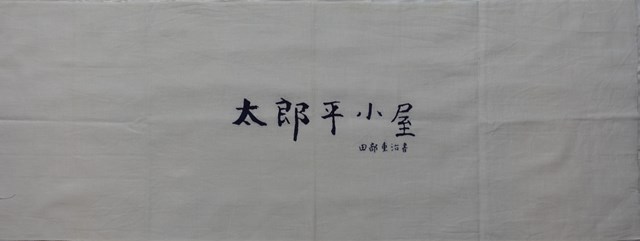 太郎平小屋
田部重治書